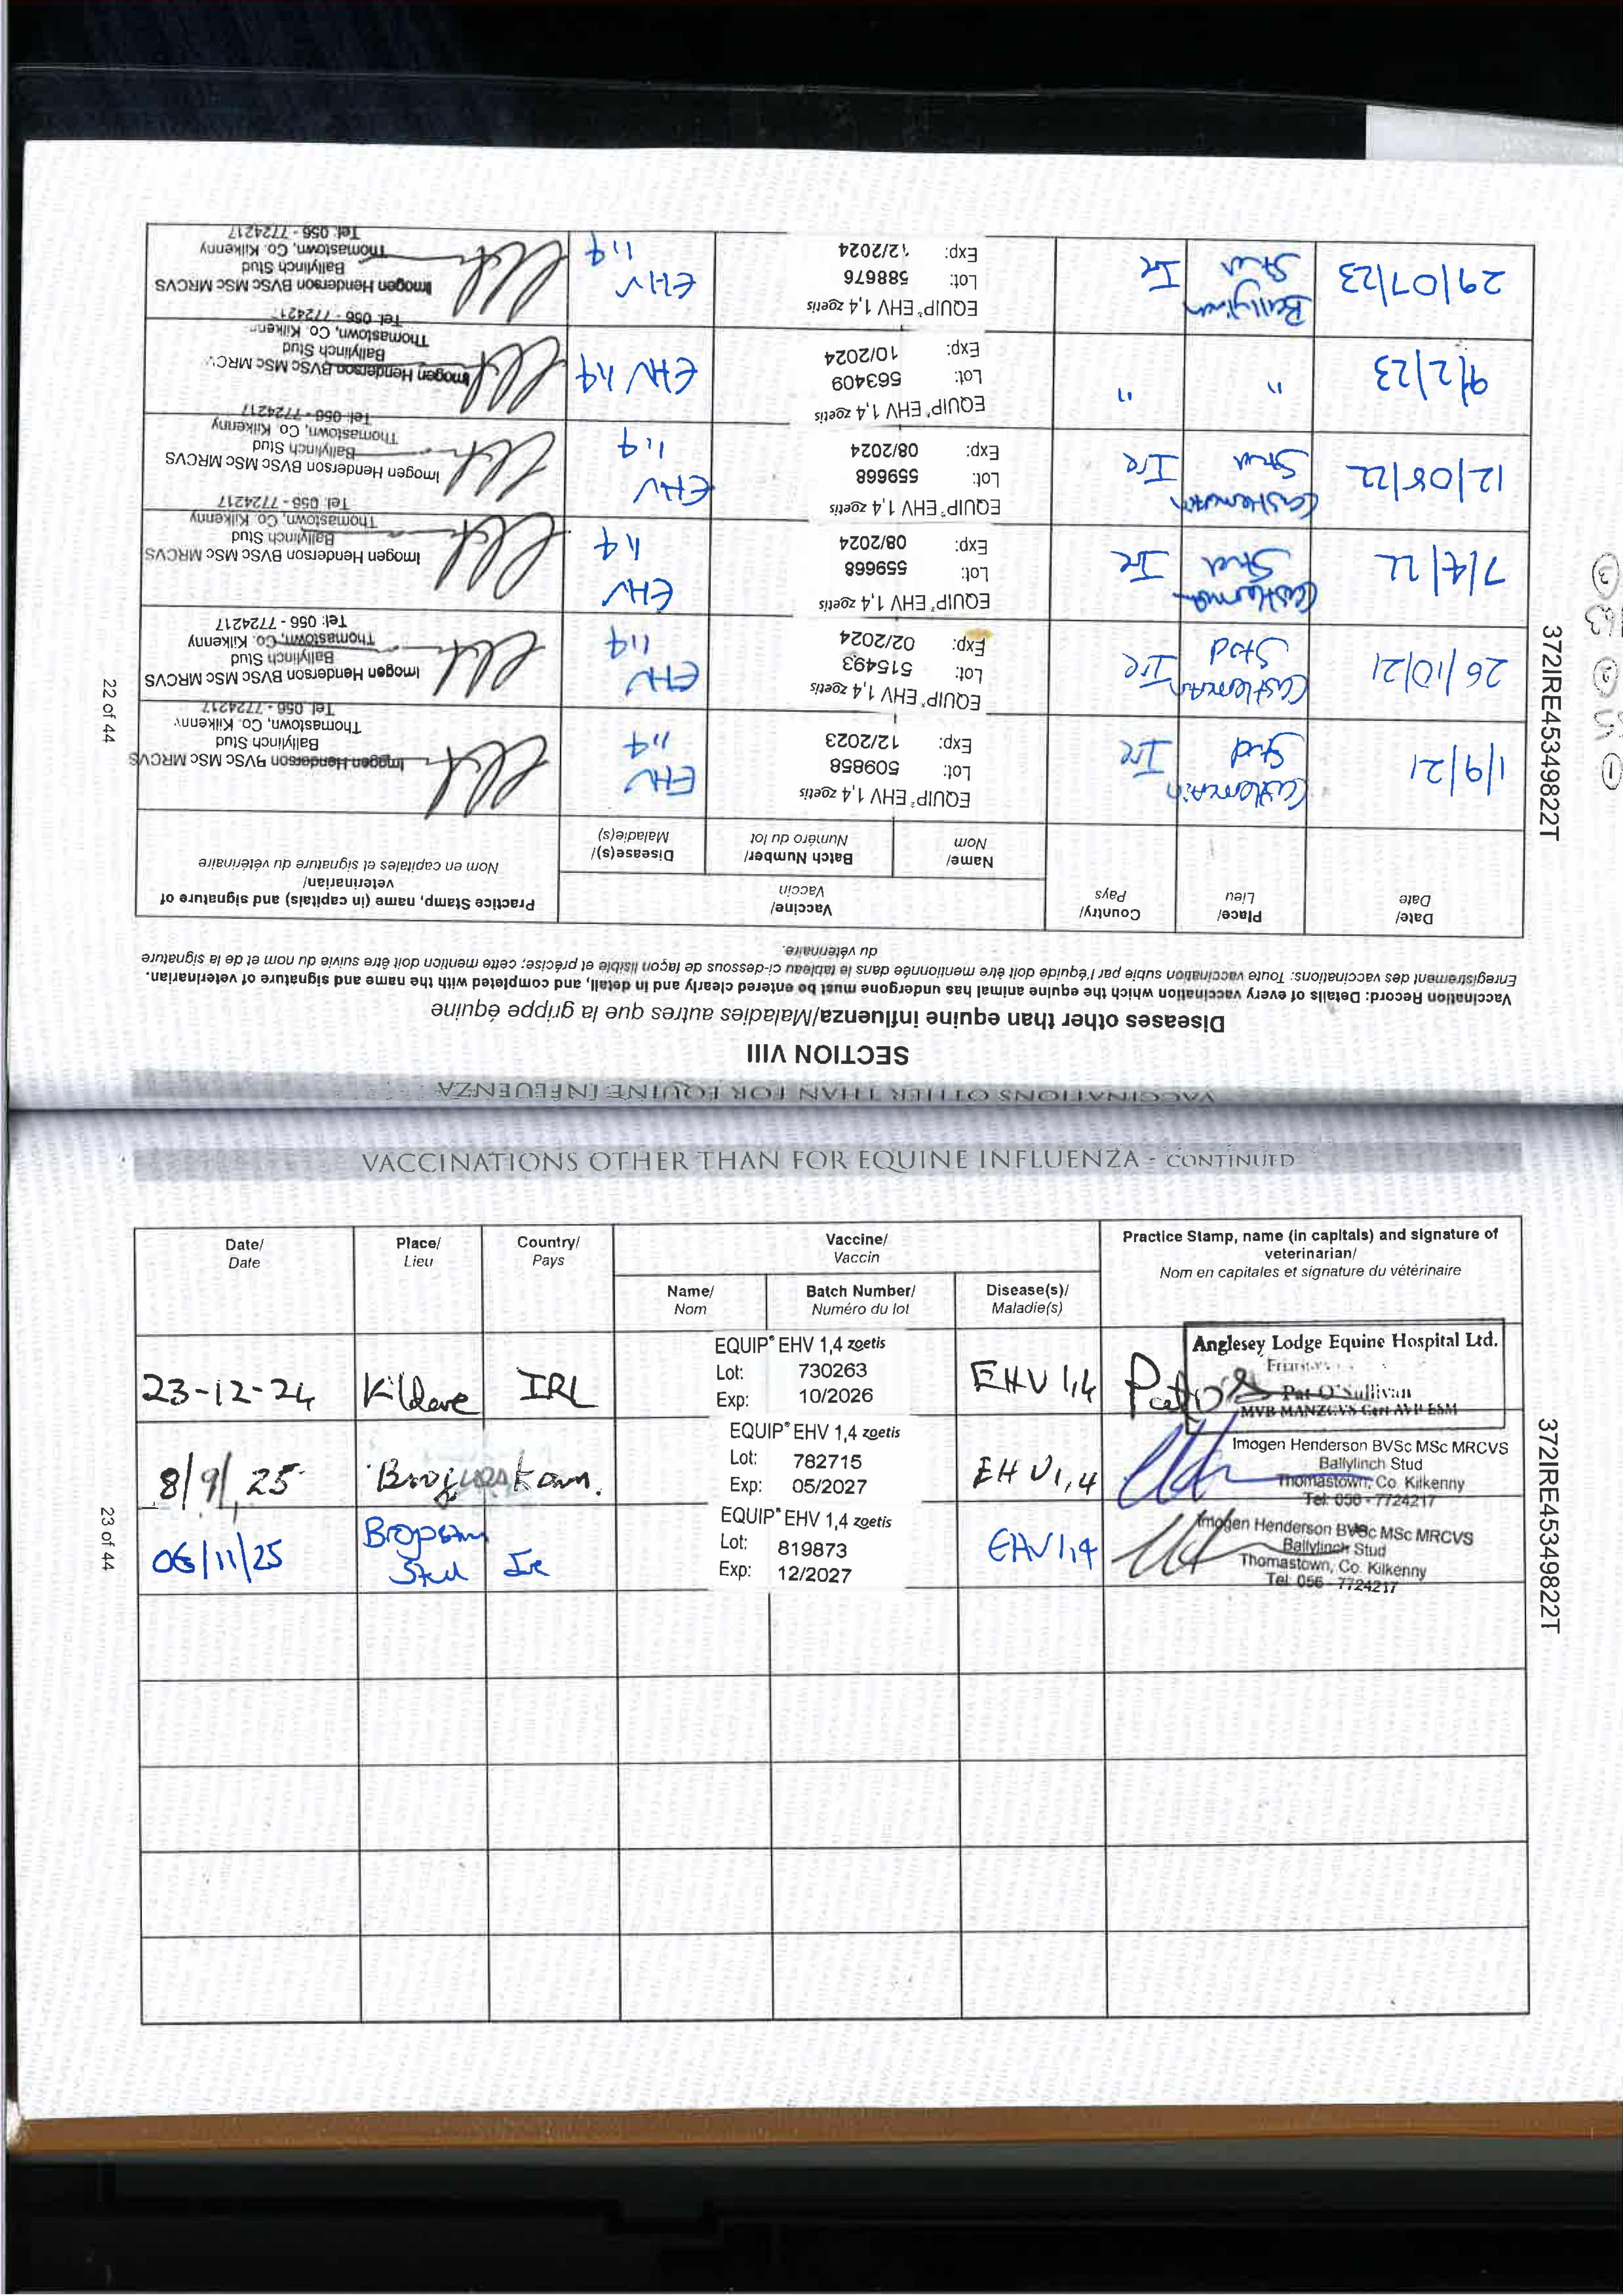 SECTION VIII
Diseases other than equine influenza/Maladies autres que la grippe équine
Vaccination Record: Details of every vaccination which the equine animal has undergone must be entered clearly and in detail, and completed with the name and signature of veterinarian.
Enregistrement des vaccinations: Toute vaccination subie par l'équidé doit être mentionnée dans le tableau ci-dessous de façon lisible et précise; cette mention doit être suivie du nom et de la signature
du vétérinaire.
Date/
Date
Place/
Lieu
Country/
Pays
Vaccine/
Vaccin
Name/
Nom
Batch Number/
Numéro du lot
Disease(s)/
Maladie(s)
Practice Stamp, name (in capitals) and signature of
veterinarian/
Nom en capitales et signature du vétérinaire
1/9/21
Castlemartin
Stud
Ire
EQUIP® EHV 1,4 zoetis
Lot: 509858
Exp: 12/2023
EHV
1,4
Imogen Henderson BVSc MSc MRCVS
Ballylinch Stud
Thomastown, Co. Kilkenny
Tel: 056 - 7724217
26/10/21
Castlemartin
Stud
Ire
EQUIP® EHV 1,4 zoetis
Lot: 515493
Exp: 02/2024
EHV
1,4
Imogen Henderson BVSc MSc MRCVS
Ballylinch Stud
Thomastown, Co. Kilkenny
Tel: 056 - 7724217
7/4/22
Stud
Ire
EQUIP® EHV 1,4 zoetis
Lot: 559668
Exp: 08/2024
EHV
1,4
Imogen Henderson BVSc MSc MRCVS
Ballylinch Stud
Thomastown, Co. Kilkenny
Tel: 056 - 7724217
12/08/22
Stud
Ire
EQUIP® EHV 1,4 zoetis
Lot: 559668
Exp: 08/2024
EHV
1,4
Imogen Henderson BVSc MSc MRCVS
Ballylinch Stud
Thomastown, Co. Kilkenny
Tel: 056 - 7724217
9/2/23
"
"
EQUIP® EHV 1,4 zoetis
Lot: 563409
Exp: 10/2024
EHV 1,4
Imogen Henderson BVSc MSc MRCV
Ballylinch Stud
Thomastown, Co. Kilkenn
Tel: 056 - 772421
29/07/23
Ballylinch
Stud
Ire
EQUIP® EHV 1,4 zoetis
Lot: 588676
Exp: 12/2024
EHV
1,4
Imogen Henderson BVSc MSc MRCVS
Ballylinch Stud
Thomastown, Co. Kilkenny
Tel: 056 - 7724217
22 of 44
372IRE45349822T
VACCINATIONS OTHER THAN FOR EQUINE INFLUENZA
VACCINATIONS OTHER THAN FOR EQUINE INFLUENZA - CONTINUED
Date/
Date
Place/
Lieu
Country/
Pays
Vaccine/
Vaccin
Name/
Nom
Batch Number/
Numéro du lot
Disease(s)/
Maladie(s)
Practice Stamp, name (in capitals) and signature of
veterinarian/
Nom en capitales et signature du vétérinaire
23-12-24
Kildare
IRL
EQUIP® EHV 1,4 zoetis
Lot: 730263
Exp: 10/2026
EHV 1,4
Anglesey Lodge Equine Hospital Ltd.
Pat O'Sullivan
8/9/25
EQUIP® EHV 1,4 zoetis
Lot: 782715
Exp: 05/2027
EHV1,4
Imogen Henderson BVSc MSc MRCVS
Ballylinch Stud
Thomastown, Co. Kilkenny
Tel: 056 - 7724217
06/11/25
Stud
Ire
EQUIP® EHV 1,4 zoetis
Lot: 819873
Exp: 12/2027
EHV1,4
Imogen Henderson BVSc MSc MRCVS
Ballylinch Stud
Thomastown, Co. Kilkenny
Tel: 056 - 7724217
23 of 44
372IRE45349822T